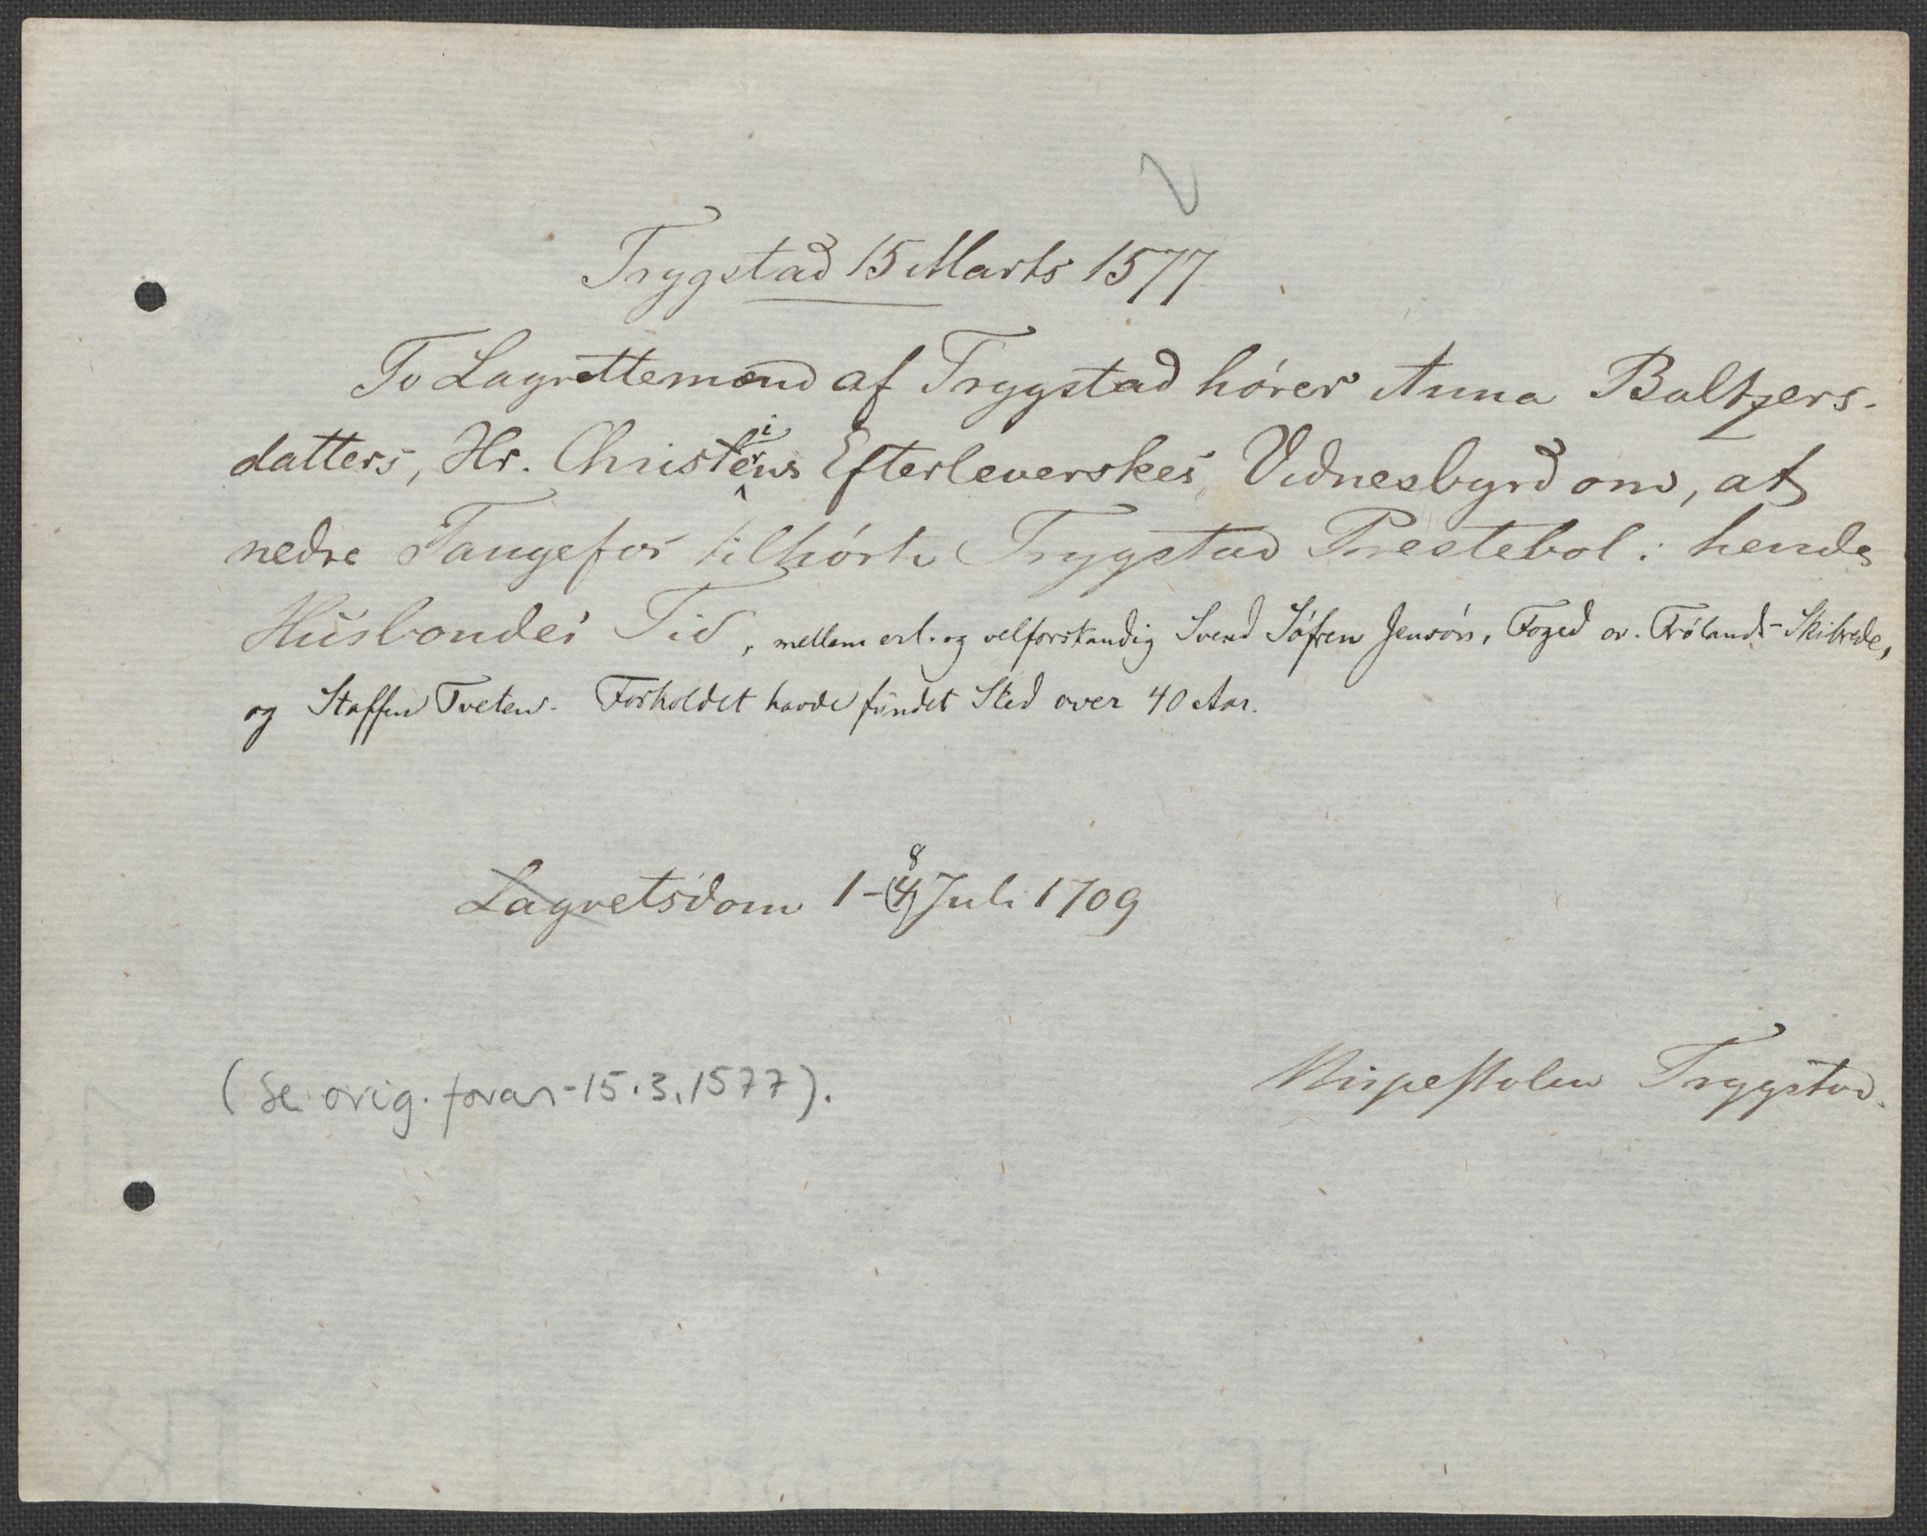 Trygstad 15 Marts 1577
To Lagrettemænd af Trygstad hører Anna Baltzers-
datters, Hr. Christiérns Efterleverskes, Vidnesbyrd om, at
nedre Tangefos tilhørte Trygstad Prestebol i hendes
Husbondes Tid, mellem erl. og velforstandig Svend Söfren Jensön, Foged ov. Frölands Skibrede,
og Staffen Tveten. Forholdet havde fundet Sted over 40 Aar.
Lagretsdom 1-(4) 8 Juli 1709
(Se orig. foran - 15.3.1577).
Trygstad.